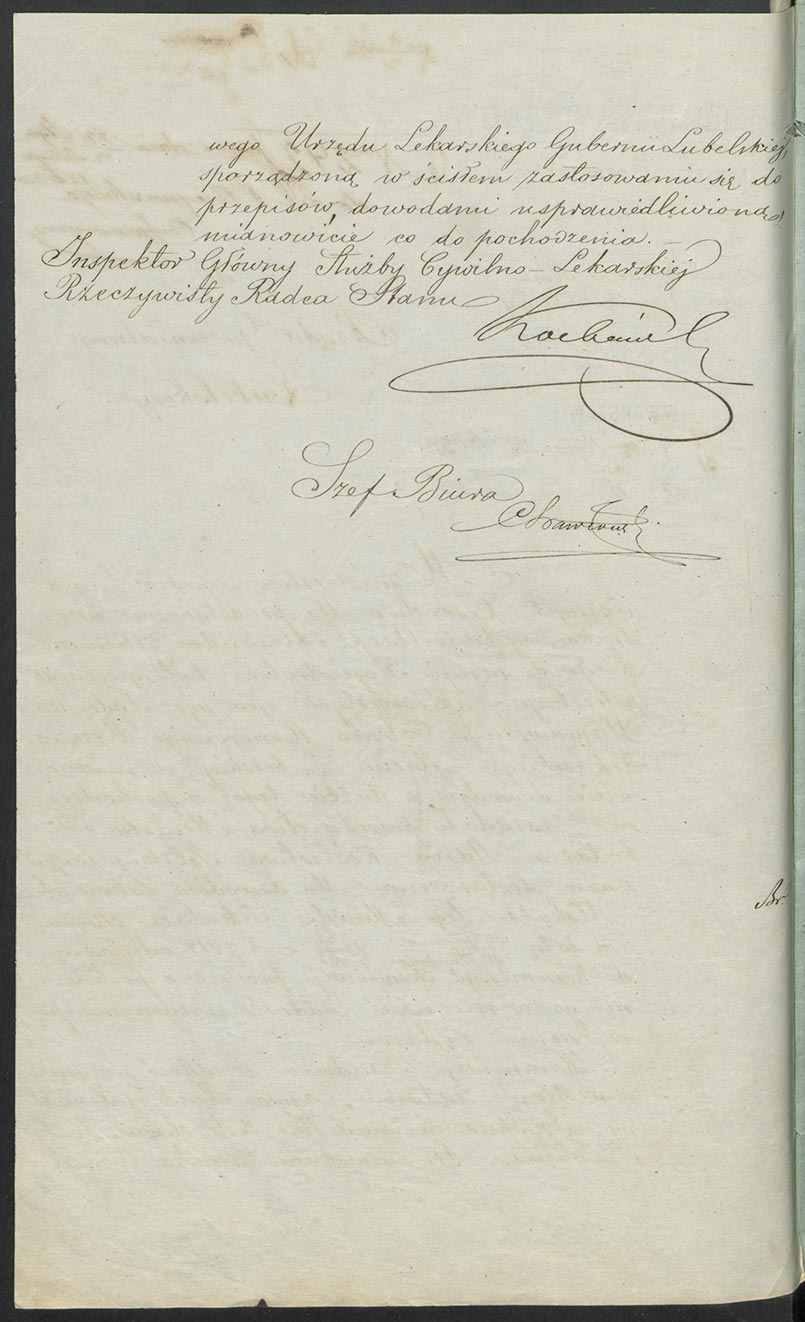 wego Urzędu Lekarskiego Gubernii Lubelskiej,
sporządzoną w ścisłem zastosowaniu się do
przepisów, dowodami usprawiedliwioną,
mianowicie co do pochodzenia. —
Inspektor Główny Służby Cywilno-Lekarskiej
Rzeczywisty Radca Stanu
Szef Biura
Br.